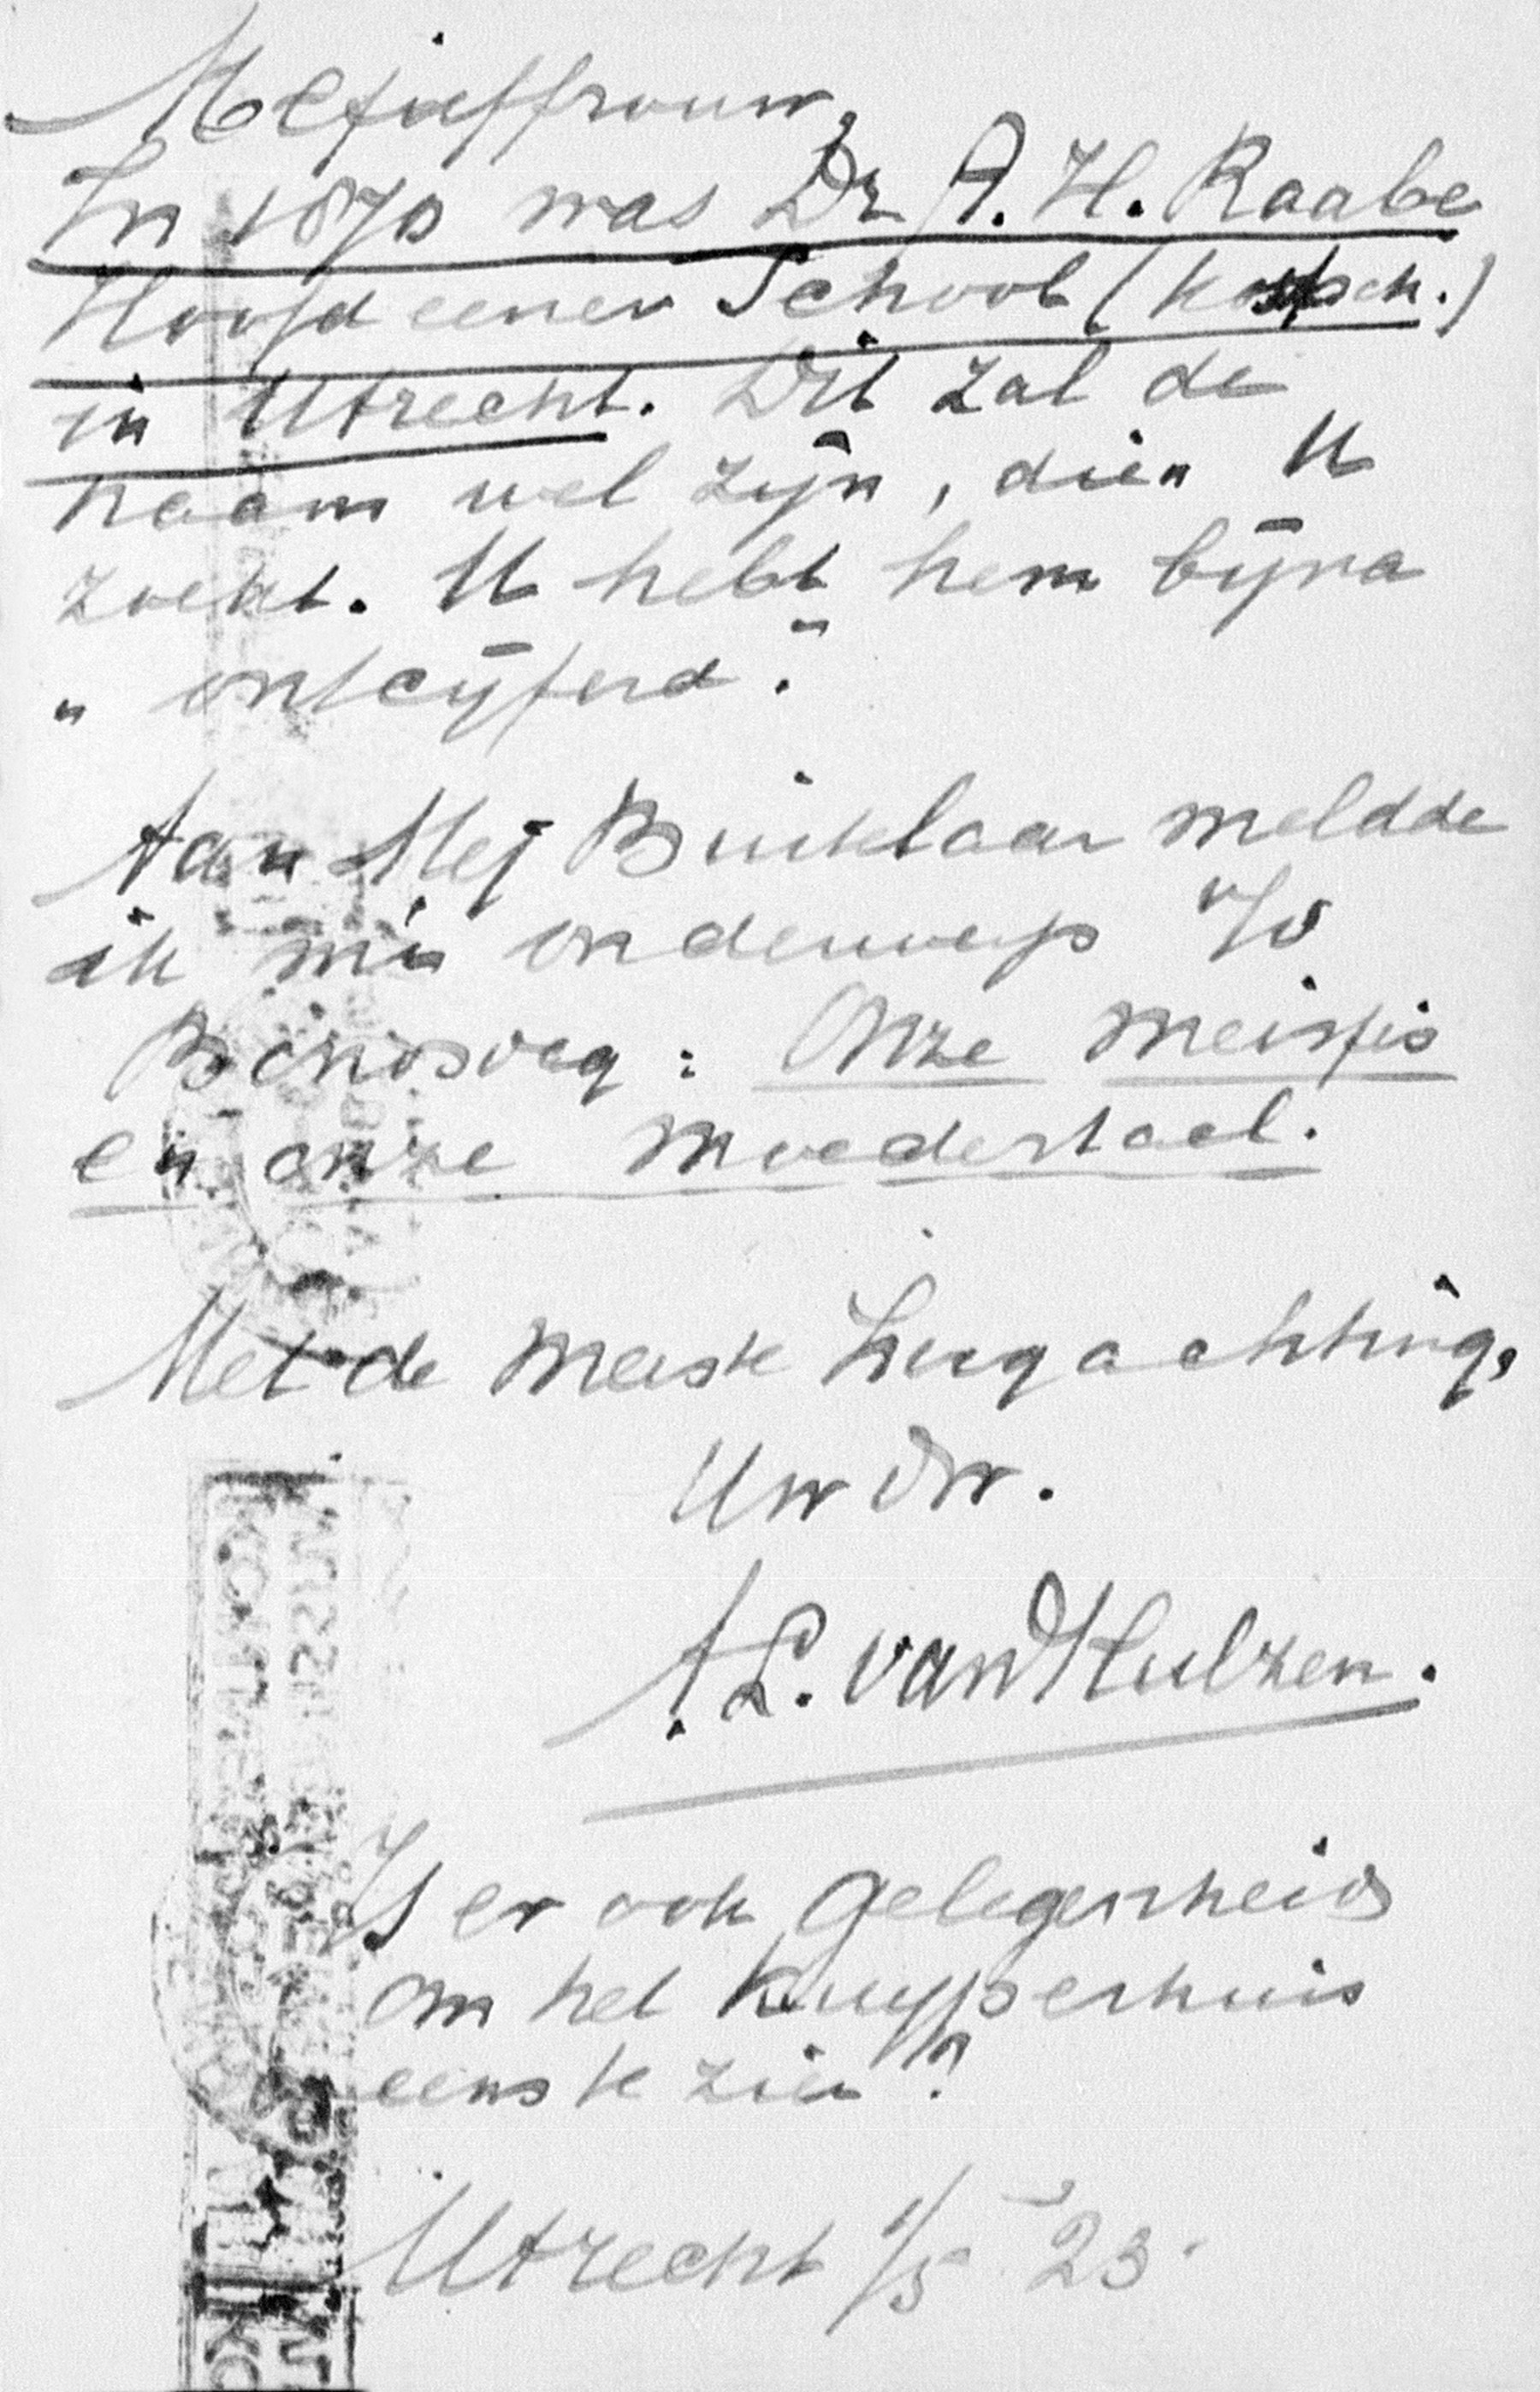 Mejuffrouw,
In 1870 was Dr A. H. Raabe
Hoofd eener School (kostsch.)
in Utrecht. Dit zal de
naam wel zijn, dien U
zoekt. U hebt hem bijna
"ontcijferd".
Aan Mej Buikelaar meldde
ik mijn onderwerp v/d
Bondsdag: Onze meisjes
en onze moedertaal.
Met de meeste hoogachting,
Uw dw.
A. L. van Hulzen.
Is er ook gelegenheid
om het Kuyperhuis
eens te zien?
Utrecht 1/5 23.